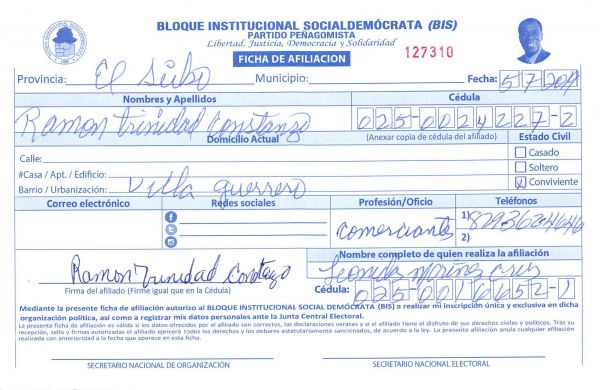 BLOQUE INSTITUCIONAL SOCIALDEMÓCRATA (BIS)
PARTIDO PEÑAGOMISTA
Libertad, Justicia, Democracia y Solidaridad
FICHA DE AFILIACION
127310
Provincia: El Seibo Municipio: Fecha: 5/7/2018
Nombres y Apellidos Cédula
Ramon trinidad Constanzo 025-0024227-2
Domicilio Actual (Anexar copia de cédula del afiliado) Estado Civil
Calle: Casado
#Casa / Apt. / Edificio: Soltero
Barrio / Urbanización: Villa guerrero Conviviente
Correo electrónico Redes sociales Profesión/Oficio Teléfonos
comerciante 1) 8293624646
2)
Nombre completo de quien realiza la afiliación
Ramon Trinidad Constanzo Leonida
Firma del afiliado (Firme igual que en la Cédula) Cédula: 025-0016652-1
Mediante la presente ficha de afiliación autorizo al BLOQUE INSTITUCIONAL SOCIAL DEMÓCRATA (BIS) a realizar mi inscripción única y exclusiva en dicha
organización política, así como a registrar mis datos personales ante la Junta Central Electoral.
La presente ficha de afiliación es válida si los datos ofrecidos por el afiliado son correctos, las declaraciones veraces y si el afiliado tiene el disfrute de sus derechos civiles y políticos. Tras su
recepción, sello y firmas autorizadas el afiliado ejercerá todos los derechos y los deberes estatutariamente sancionados, de acuerdo a la ley. La presente afiliación anula cualquier afiliación
realizada con anterioridad a la fecha que aparece en esta ficha.
SECRETARIO NACIONAL DE ORGANIZACIÓN SECRETARIO NACIONAL ELECTORAL